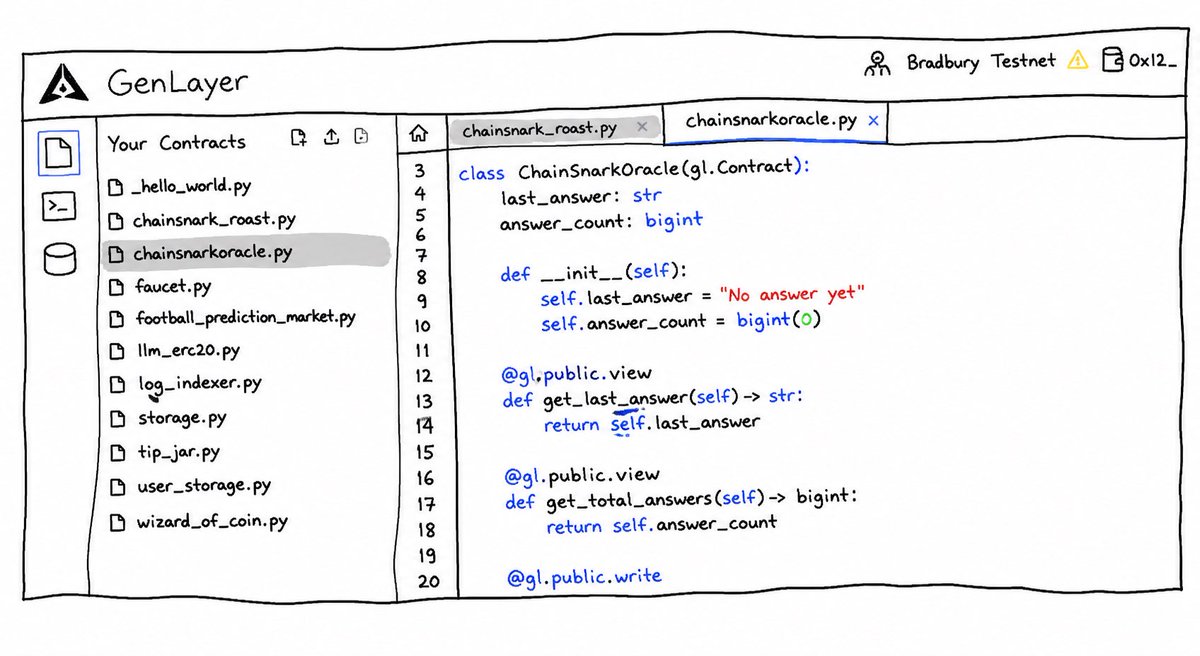 GenLayer
Bradbury Testnet
0x12_
Your Contracts
_hello_world.py
chainsnark_roast.py
chainsnarkoracle.py
faucet.py
football_prediction_market.py
llm_erc20.py
log_indexer.py
storage.py
tip_jar.py
user_storage.py
wizard_of_coin.py
chainsnark_roast.py ×
chainsnarkoracle.py ×
3 class ChainSnarkOracle(gl.Contract):
4 last_answer: str
5 answer_count: bigint
6
7
8 def __init__(self):
9 self.last_answer = "No answer yet"
10 self.answer_count = bigint(0)
11
12 @gl.public.view
13 def get_last_answer(self) -> str:
14 return self.last_answer
15
16 @gl.public.view
17 def get_total_answers(self) -> bigint:
18 return self.answer_count
19
20 @gl.public.write